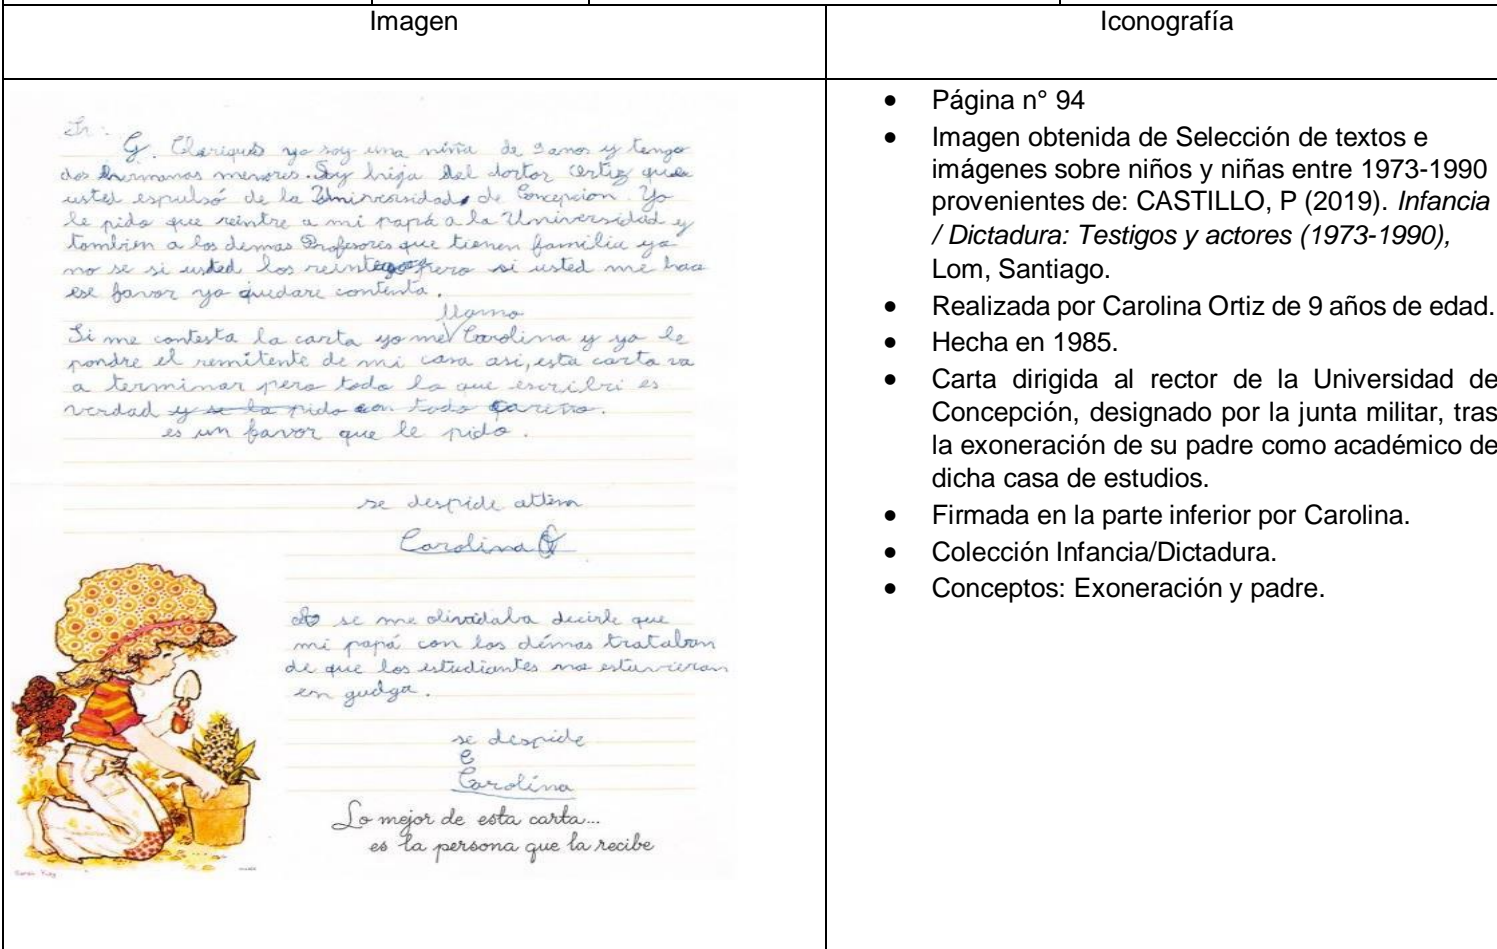 Imagen
Iconografía
Sr:
G. Clariques yo soy una niña de 9 anos y tengo
dos hermanas menores. Soy hija del doctor Ortiz que
usted espulsó de la Universidad de Concepcion. Yo
le pido que reintre a mi papá a la Universidad y
tambien a los demas Profesores que tienen familia yo
no se si usted los reintego pero si usted me hace
ese favor yo quedare contenta.
llamo
Si me contesta la carta yo me Carolina y yo le
pondre el remitente de mi casa asi, esta carta va
a terminar pero todo lo que escribi es
verdad y se lo pido con todo cariño.
es un favor que le pido.
se despide attem
Carolina O
se me olvidaba decirle que
mi papá con los démas trataban
de que los estudiantes no estuvieran
en guelga.
se despide
C
Carolina
Lo mejor de esta carta...
es la persona que la recibe
Sarah Kay
• Página n° 94
• Imagen obtenida de Selección de textos e
imágenes sobre niños y niñas entre 1973-1990
provenientes de: CASTILLO, P (2019). Infancia
/ Dictadura: Testigos y actores (1973-1990),
Lom, Santiago.
• Realizada por Carolina Ortiz de 9 años de edad.
• Hecha en 1985.
• Carta dirigida al rector de la Universidad de
Concepción, designado por la junta militar, tras
la exoneración de su padre como académico de
dicha casa de estudios.
• Firmada en la parte inferior por Carolina.
• Colección Infancia/Dictadura.
• Conceptos: Exoneración y padre.